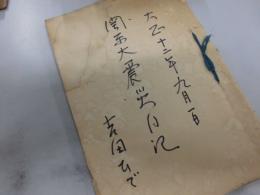 大正十二年九月一日
関東大震災日記
吉田ひで